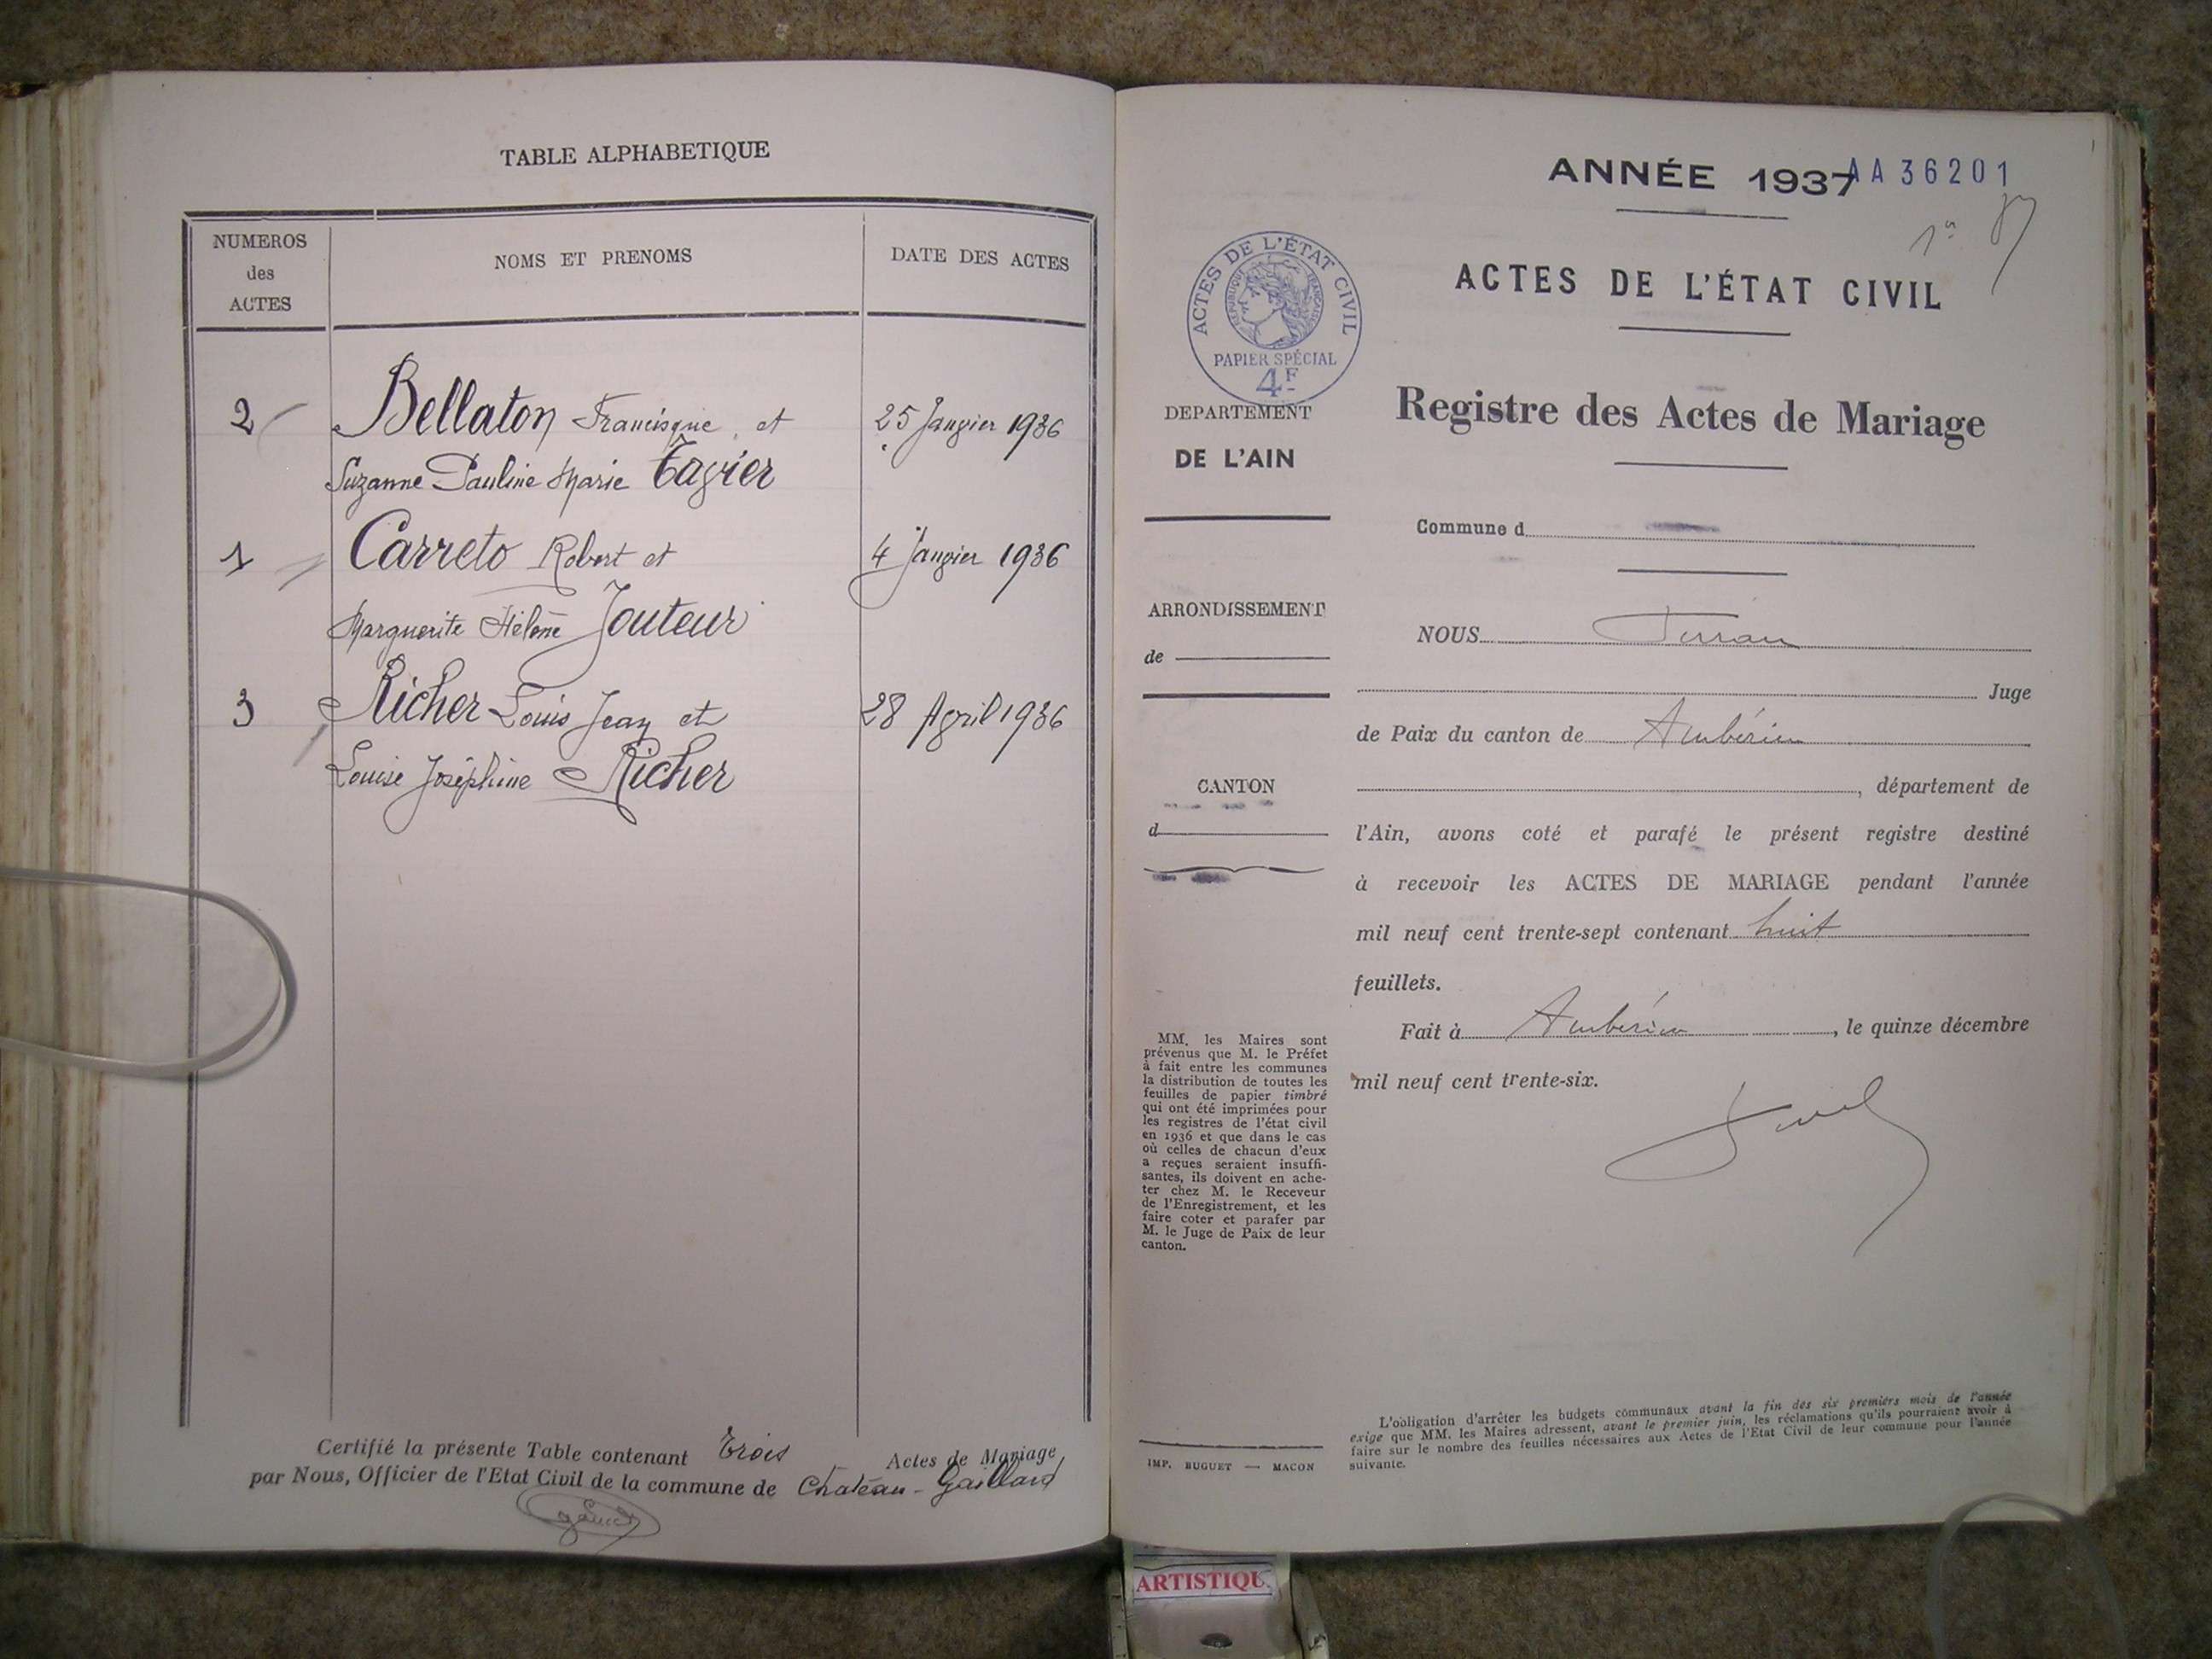 TABLE ALPHABETIQUE
NUMEROS
des
ACTES
NOMS ET PRENOMS
DATE DES ACTES
2
Bellaton Francisque et
25 Janvier 1936
Suzanne Pauline Marie Tavier
1
Carreto Robert et
4 Janvier 1936
Marguerite Hélène Jouteur
3
Richer Louis Jean et
28 Avril 1936
Louise Joséphine Richer
Certifié la présente Table contenant Trois Actes de Mariage
par Nous, Officier de l'Etat Civil de la commune de Chateau-Gaillard
ANNÉE 1937
AA 36201
ACTES DE L'ÉTAT CIVIL
RÉPUBLIQUE FRANÇAISE
PAPIER SPÉCIAL
4F
ACTES DE L'ÉTAT CIVIL
Registre des Actes de Mariage
DEPARTEMENT
DE L'AIN
Commune d
ARRONDISSEMENT
de
CANTON
d
NOUS
Juge
de Paix du canton de Ambérieu
, département de
l'Ain, avons coté et parafé le présent registre destiné
à recevoir les ACTES DE MARIAGE pendant l'année
mil neuf cent trente-sept contenant huit
feuillets.
Fait à Ambérieu, le quinze décembre
mil neuf cent trente-six.
MM. les Maires sont
prévenus que M. le Préfet
à fait entre les communes
la distribution de toutes les
feuilles de papier timbré
qui ont été imprimées pour
les registres de l'état civil
en 1936 et que dans le cas
où celles de chacun d'eux
a reçues seraient insuffi-
santes, ils doivent en ache-
ter chez M. le Receveur
de l'Enregistrement, et les
faire coter et parafer par
M. le Juge de Paix de leur
canton.
IMP. BUGUET — MACON
L'obligation d'arrêter les budgets communaux avant la fin des six premiers mois de l'année
exige que MM. les Maires adressent, avant le premier juin, les réclamations qu'ils pourraient avoir à
faire sur le nombre des feuilles nécessaires aux Actes de l'Etat Civil de leur commune pour l'année
suivante.
ARTISTIQU